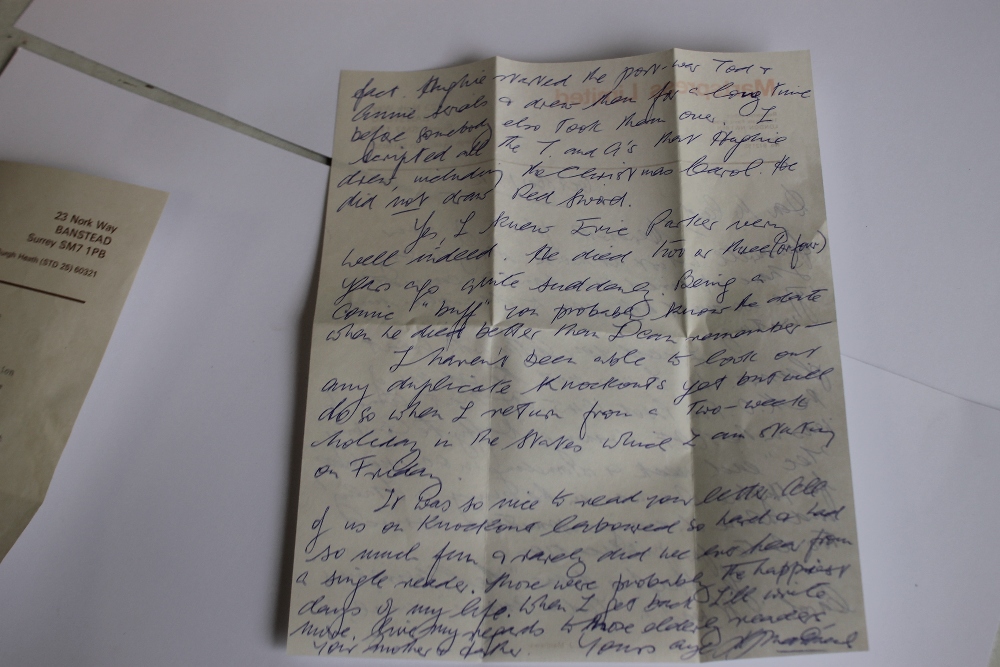 23 Nork Way
BANSTEAD
Surrey SM7 1PB
Burgh Heath (STD 25) 60321
fact. Hughie started the post-war Tod &
Annie serials & drew them for a long time
before somebody else took them over. I
scripted all the T. and A's that Hughie
drew, including the Christmas Carol. He
did not draw Red Sword.
Yes, I knew Eric Parker very
well indeed. He died two or three (or four)
years ago quite suddenly. Being a
comic "buff" you probably know the date
when he died better than I can remember —
I haven't been able to look out
any duplicate Knockouts yet but will
do so when I return from a two-week
holiday in the States which I am starting
on Friday.
It was so nice to read your letter. All
of us on Knockout laboured so hard & had
so much fun & rarely did we ever hear from
a single reader. Those were probably the happiest
days of my life. When I get back I'll write
more. Give my regards to those elderly readers
your mother & father. Yours aye